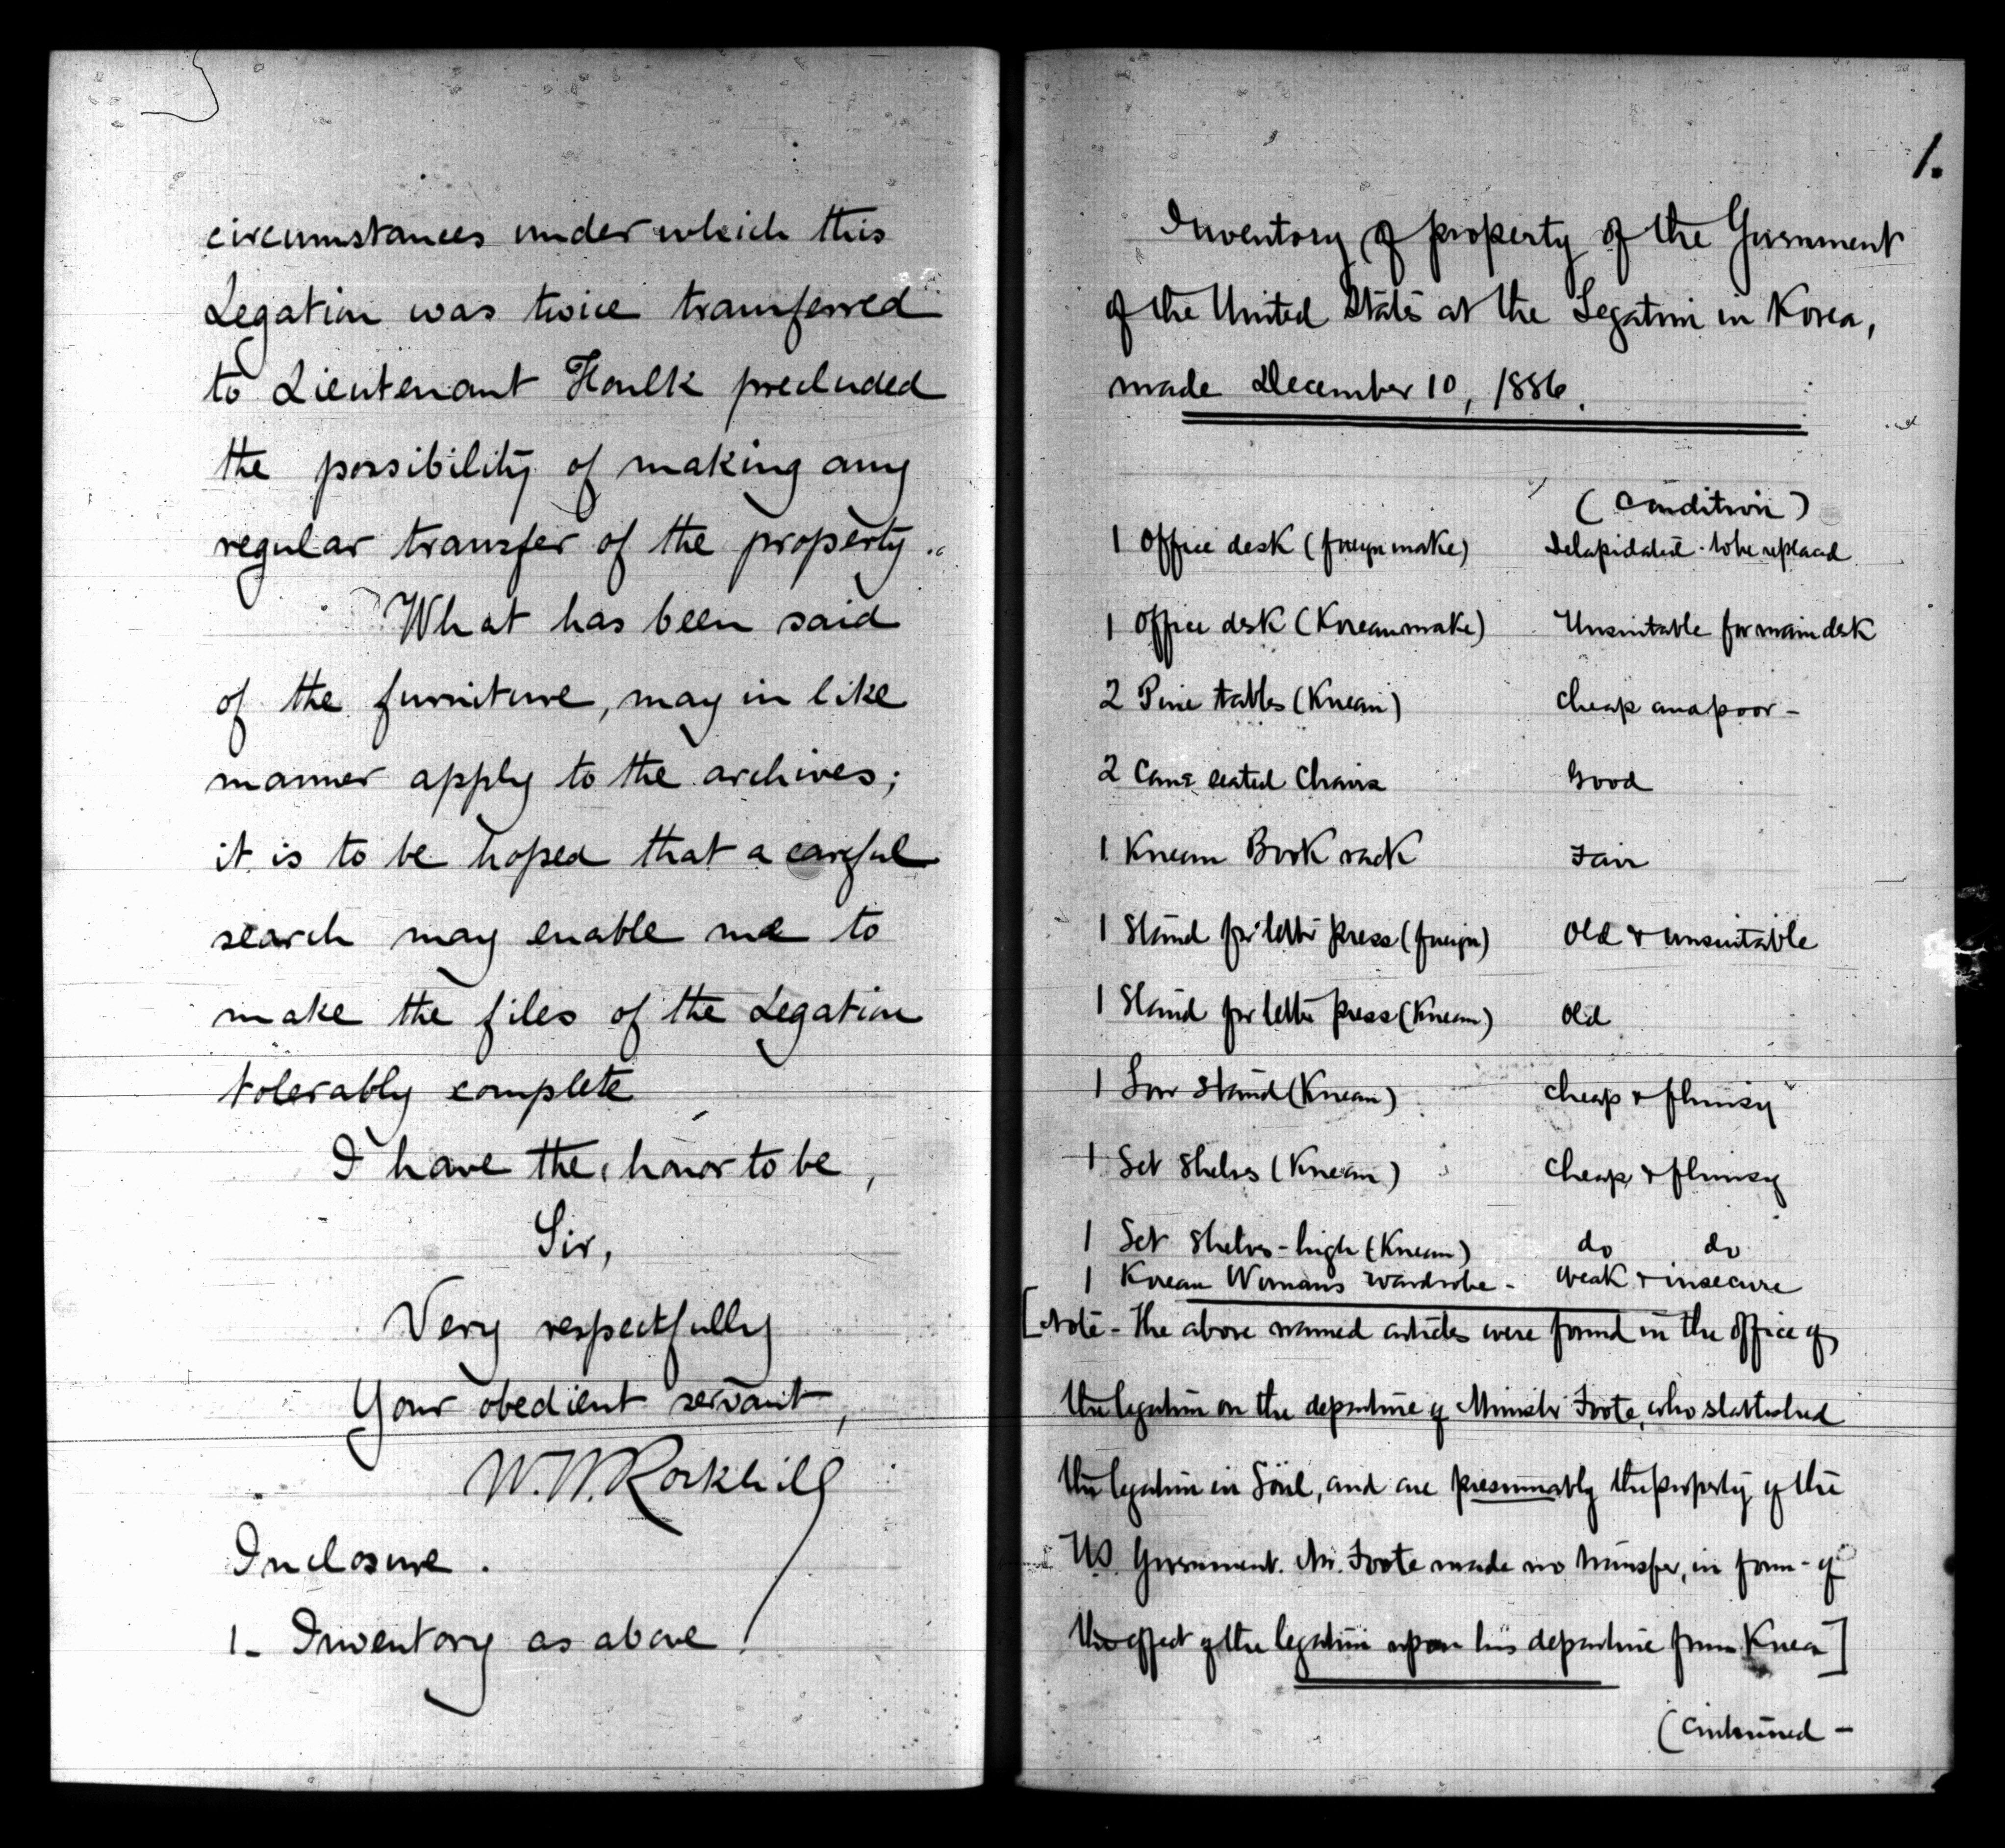 circumstances under which this
Legation was twice transferred
to Lieutenant Foulk precluded
the possibility of making any
regular transfer of the property.
What has been said
of the furniture, may in like
manner apply to the archives;
it is to be hoped that a careful
search may enable me to
make the files of the Legation
tolerably complete
I have the honor to be,
Sir,
Very respectfully
Your obedient servant,
W. W. Rockhill
Inclosure.
1- Inventory as above.
1.
Inventory of property of the Government
of the United States at the Legation in Korea,
made December 10, 1886.
(Condition)
1 Office desk (foreign make) Delapidated - to be replaced
1 Office desk (Korean make) Unsuitable for main desk
2 Pine tables (Korean) Cheap and poor -
2 Cane seated Chairs Good
1 Korean Book rack Fair
1 Stand for letter press (foreign) Old & unsuitable
1 Stand for letter press (Korean) Old
1 Low stand (Korean) Cheap & flimsy
1 Set Shelves (Korean) Cheap & flimsy
1 Set Shelves - high (Korean) do do
1 Korean Womans wardrobe - Weak & insecure
[Note - The above named articles were found in the office of
the legation on the departure of Minister Foote, who established
the legation in Söul, and are presumably the property of the
US Government. Mr. Foote made no transfer, in form - of
the effect of the legation upon his departure from Korea]
(Continued -